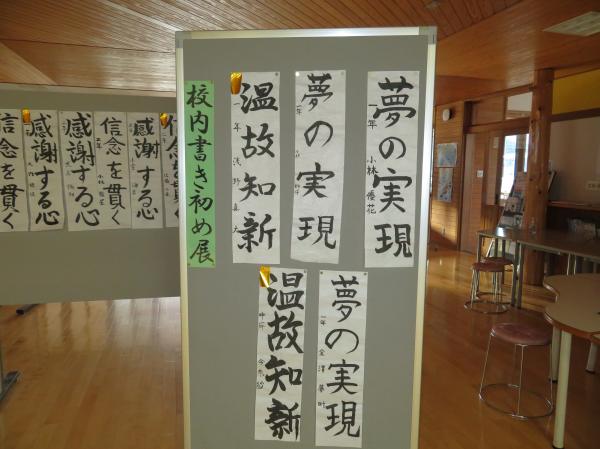 校内書き初め展
温故知新
一年
夢の実現
一年
夢の実現
一年 小林優花
温故知新
夢の実現
一年
信念を貫く
感謝する心
感謝する心
信念を貫く
感謝する心
信念を貫く